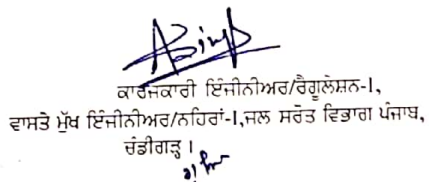 ਕਾਰਜਕਾਰੀ ਇੰਜੀਨੀਅਰ/ਰੈਗੂਲੇਸ਼ਨ-I,
ਵਾਸਤੇ ਮੁੱਖ ਇੰਜੀਨੀਅਰ/ਨਹਿਰਾਂ-I,ਜਲ ਸਰੋਤ ਵਿਭਾਗ ਪੰਜਾਬ,
ਚੰਡੀਗੜ੍ਹ।